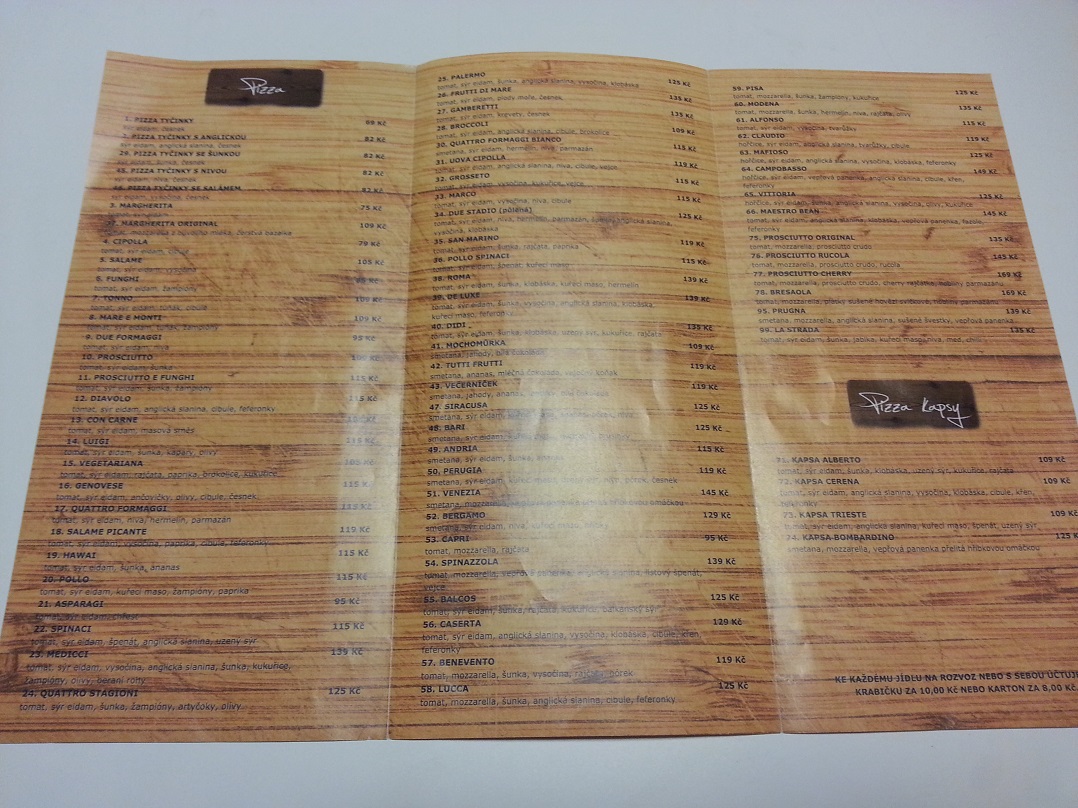 Pizza
1. PIZZA TYČINKY
sýr eidam, česnek
2. PIZZA TYČINKY S ANGLICKOU 82 Kč
sýr eidam, anglická slanina, česnek
29. PIZZA TYČINKY SE ŠUNKOU 82 Kč
sýr eidam, šunka, česnek
45. PIZZA TYČINKY S NIVOU 82 Kč
sýr eidam, niva, česnek
46. PIZZA TYČINKY SE SALÁMEM 82 Kč
sýr eidam, vysočina, česnek
3. MARGHERITA 75 Kč
tomat, sýr eidam
MARGHERITA ORIGINAL 109 Kč
tomat, mozzarella z buvolího mléka, čerstvá bazalka
4. CIPOLLA 79 Kč
tomat, sýr eidam, cibule
5. SALAME 105 Kč
tomat, sýr eidam, vysočina
6. FUNGHI
tomat, sýr eidam, žampiony
7. TONNO 109 Kč
tomat, sýr eidam, tuňák, cibule
8. MARE E MONTI 109 Kč
tomat, sýr eidam, tuňák, žampiony
9. DUE FORMAGGI 95 Kč
tomat, sýr eidam, niva
10. PROSCIUTTO
tomat, sýr eidam, šunka
11. PROSCIUTTO E FUNGHI 115 Kč
tomat, sýr eidam, šunka, žampiony
12. DIAVOLO 115 Kč
tomat, sýr eidam, anglická slanina, cibule, feferonky
13. CON CARNE
tomat, sýr eidam, masová směs
14. LUIGI 115 Kč
tomat, sýr eidam, šunka, kapary, olivy
15. VEGETARIANA 105 Kč
tomat, sýr eidam, rajčata, paprika, brokolice, kukuřice
16. GENOVESE 115 K
tomat, sýr eidam, ančovičky, olivy, cibule, česnek
17. QUATTRO FORMAGGI 115 Kč
tomat, sýr eidam, niva, hermelin, parmazán
18. SALAME PICANTE 119 Kč
tomat, sýr eidam, vysočina, paprika, cibule, feferonky
19. HAWAI 115 Kč
tomat, sýr eidam, šunka, ananas
20. POLLO 115 Kč
tomat, sýr eidam, kuřecí maso, žampiony, paprika
21. ASPARAGI 95 Kč
tomat, sýr eidam, chřest
22. SPINACI 115 Kč
tomat, sýr eidam, špenát, anglická slanina, uzený sýr
23. MEDICCI 139 Kč
tomat, sýr eidam, vysočina, anglická slanina, šunka, kukuřice,
žampiony, olivy, beraní rohy
24. QUATTRO STAGIONI 125 Kč
tomat, sýr eidam, šunka, žampiony, artyčoky, olivy
25. PALERMO 125 Kč
tomat, sýr eidam, šunka, anglická slanina, vysočina, klobása
26. FRUTTI DI MARE 135 Kč
tomat, sýr eidam, plody moře, česnek
27. GAMBERETTI 135 Kč
tomat, sýr eidam, krevety, česnek
28. BROCCOLI 109 Kč
tomat, sýr eidam, anglická slanina, cibule, brokolice
30. QUATTRO FORMAGGI BIANCO 115 Kč
smetana, sýr eidam, hermelin, niva, parmazán
31. UOVA CIPOLLA 119 Kč
tomat, sýr eidam, anglická slanina, niva, cibule, vejce
32. GROSSETO 115 Kč
tomat, sýr eidam, vysočina, kukuřice, vejce
33. MARCO 115 Kč
tomat, sýr eidam, vysočina, niva, cibule
34. DUE STADIO (půlená) 125 Kč
tomat, sýr eidam, niva, hermelin, parmazán, špenát, anglická slanina,
vysočina, klobása
35. SAN MARINO 119 Kč
tomat, sýr eidam, šunka, rajčata, paprika
36. POLLO SPINACI 115 Kč
tomat, sýr eidam, špenát, kuřecí maso
38. ROMA 139 Kč
tomat, sýr eidam, šunka, klobása, kuřecí maso, hermelin
39. DE LUXE 139 Kč
tomat, sýr eidam, šunka, vysočina, anglická slanina, klobása,
kuřecí maso, feferonky
40. DIDI 135 Kč
tomat, sýr eidam, šunka, klobása, uzený sýr, kukuřice, rajčata
41. MOCHOMŮRKA 109 Kč
smetana, jahody, bílá čokoláda
42. TUTTI FRUTTI 119 Kč
smetana, ananas, mléčná čokoláda, vaječný koňak
43. VEČERNÍČEK 119 Kč
smetana, jahody, ananas,
47. SIRACUSA 125 Kč
smetana, sýr eidam,
48. BARI 125 Kč
smetana, sýr eidam,
49. ANDRIA 115 Kč
smetana, sýr eidam, šunka,
50. PERUGIA 119 Kč
smetana, sýr eidam, kuřecí maso, niva, pórek, česnek
51. VENEZIA 145 Kč
smetana, mozzarella, hřibkovou omáčkou
52. BERGAMO 129 Kč
smetana, sýr eidam, niva, kuřecí maso,
53. CAPRI 95 Kč
tomat, mozzarella, rajčata
54. SPINAZZOLA 139 Kč
tomat, mozzarella, vepřová panenka, anglická slanina, listový špenát,
vejce
55. BALCOS 125 Kč
tomat, sýr eidam, šunka, rajčata, kukuřice, balkánský sýr
56. CASERTA 129 Kč
tomat, sýr eidam, anglická slanina, vysočina, klobása, cibule, křen,
feferonky
57. BENEVENTO 119 Kč
tomat, mozzarella, šunka, vysočina, rajčata, pórek
58. LUCCA 125 Kč
tomat, mozzarella, šunka, anglická slanina, cibule, feferonky
59. PISA 125 Kč
tomat, mozzarella, šunka, žampiony, kukuřice
60. MODENA 135 Kč
tomat, mozzarella, šunka, hermelin, niva, rajčata, olivy
61. ALFONSO 115 Kč
tomat, sýr eidam, vysočina, tvarůžky
62. CLAUDIO 119 Kč
hořčice, sýr eidam, anglická slanina, tvarůžky, cibule
63. MAFIOSO 125 Kč
hořčice, sýr eidam, anglická slanina, vysočina, klobása, feferonky
64. CAMPOBASSO 149 Kč
hořčice, sýr eidam, vepřová panenka, anglická slanina, cibule, křen,
feferonky
65. VITTORIA 135 Kč
hořčice, sýr eidam, šunka, anglická slanina, vysočina, olivy, kukuřice
66. MAESTRO BEAN 145 Kč
tomat, sýr eidam, anglická slanina, klobása, vepřová panenka, fazole,
feferonky
75. PROSCIUTTO ORIGINAL 135 Kč
tomat, mozzarella, prosciutto crudo
76. PROSCIUTTO RUCOLA 145 Kč
tomat, mozzarella, prosciutto crudo, rucola
77. PROSCIUTTO CHERRY 169 Kč
tomat, mozzarella, prosciutto crudo, cherry rajčátka, hobliny parmazánu
78. BRESAOLA 169 Kč
tomat, mozzarella, plátky sušené hovězí svíčkové, hobliny parmazánu
95. PRUGNA 139 Kč
smetana, mozzarella, anglická slanina, sušené švestky, vepřová panenka
99. LA STRADA 135 Kč
tomat, sýr eidam, šunka, jablka, kuřecí maso, niva, med, chilli
Pizza Kapsy
71. KAPSA ALBERTO 109 Kč
tomat, sýr eidam, šunka, klobása, uzený sýr, kukuřice, rajčata
72. KAPSA CERENA 109 Kč
tomat, sýr eidam, anglická slanina, vysočina, klobása, cibule, křen,
73. KAPSA TRIESTE 109 Kč
tomat, sýr eidam, anglická slanina, kuřecí maso, špenát, uzený sýr
74. KAPSA BOMBARDINO 125 K
smetana, mozzarella, vepřová panenka přelitá hřibkovou omáčkou
KE KAŽDÉMU JÍDLU NA ROZVOZ NEBO S SEBOU ÚČTUJE
KRABIČKU ZA 10,00 Kč NEBO KARTON ZA 8,00 Kč.